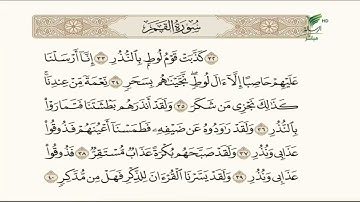 سُورَةُ القَمَرِ
HD
٣٢ كَذَّبَتْ قَوْمُ لُوطٍ بِالنُّذُرِ ٣٣ إِنَّا أَرْسَلْنَا
عَلَيْهِمْ حَاصِبًا إِلَّا آلَ لُوطٍ نَجَّيْنَاهُمْ بِسَحَرٍ ٣٤ نِعْمَةً مِنْ عِنْدِنَا
كَذَلِكَ نَجْزِي مَنْ شَكَرَ ٣٥ وَلَقَدْ أَنْذَرَهُمْ بَطْشَتَنَا فَتَمَارَوْا
بِالنُّذُرِ ٣٦ وَلَقَدْ رَاوَدُوهُ عَنْ ضَيْفِهِ فَطَمَسْنَا أَعْيُنَهُمْ فَذُوقُوا
عَذَابِي وَنُذُرِ ٣٧ وَلَقَدْ صَبَّحَهُمْ بُكْرَةً عَذَابٌ مُسْتَقِرٌّ ٣٨ فَذُوقُوا
عَذَابِي وَنُذُرِ ٣٩ وَلَقَدْ يَسَّرْنَا الْقُرْءَانَ لِلذِّكْرِ فَهَلْ مِنْ مُدَّكِرٍ ٤٠